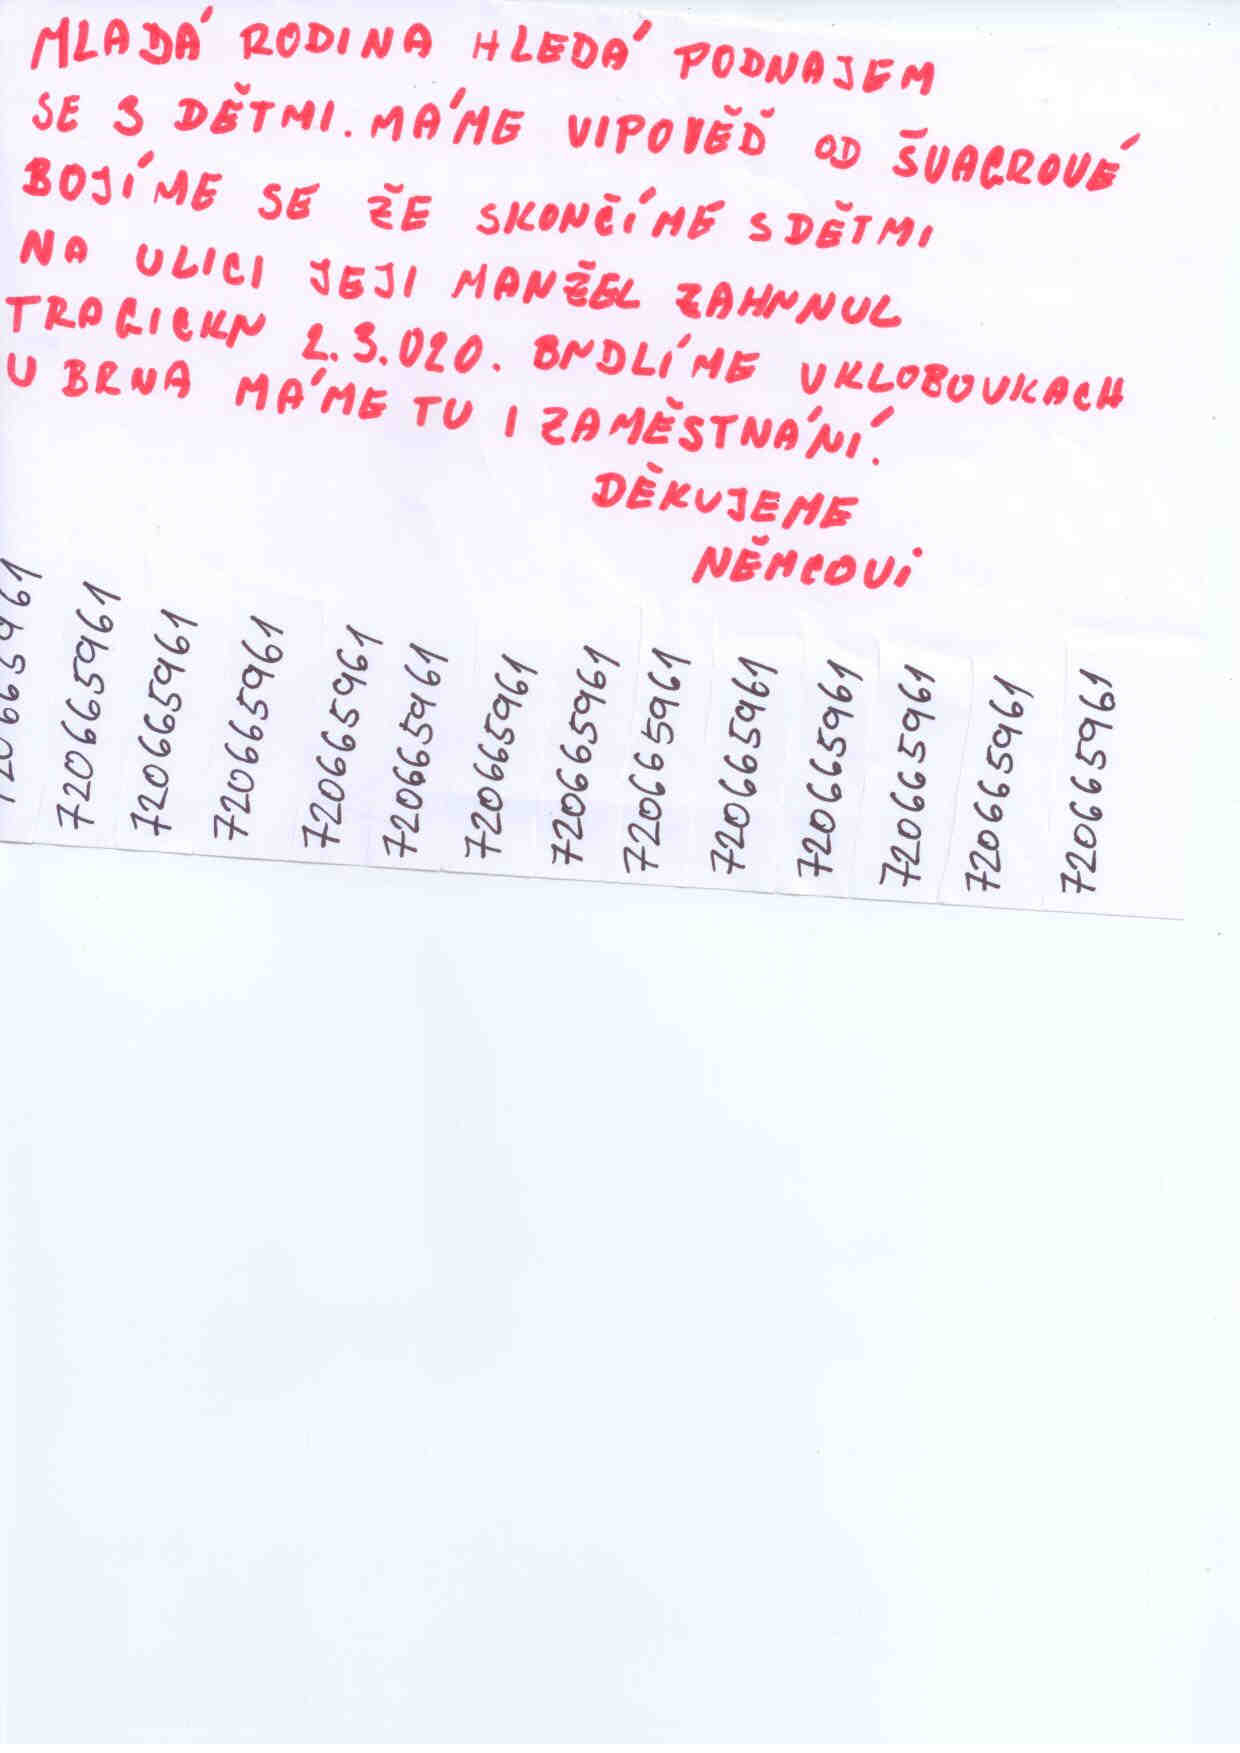 MLADÁ RODINA HLEDÁ PODNAJEM
SE 3 DĚTMI. MÁME VIPOVĚĎ OD ŠVAGROVÉ
BOJÍME SE ŽE SKONČÍME S DĚTMI
NA ULICI JEJI MANŽEL ZAHYNUL
TRAGICKY 2.3.020. BYDLÍME V KLOBOUKACH
U BRNA MÁME TU I ZAMĚSTNÁNÍ.
DĚKUJEME
NĚMCOVI
720665961
720665961
720665961
720665961
720665961
720665961
720665961
720665961
720665961
720665961
720665961
720665961
720665961
720665961